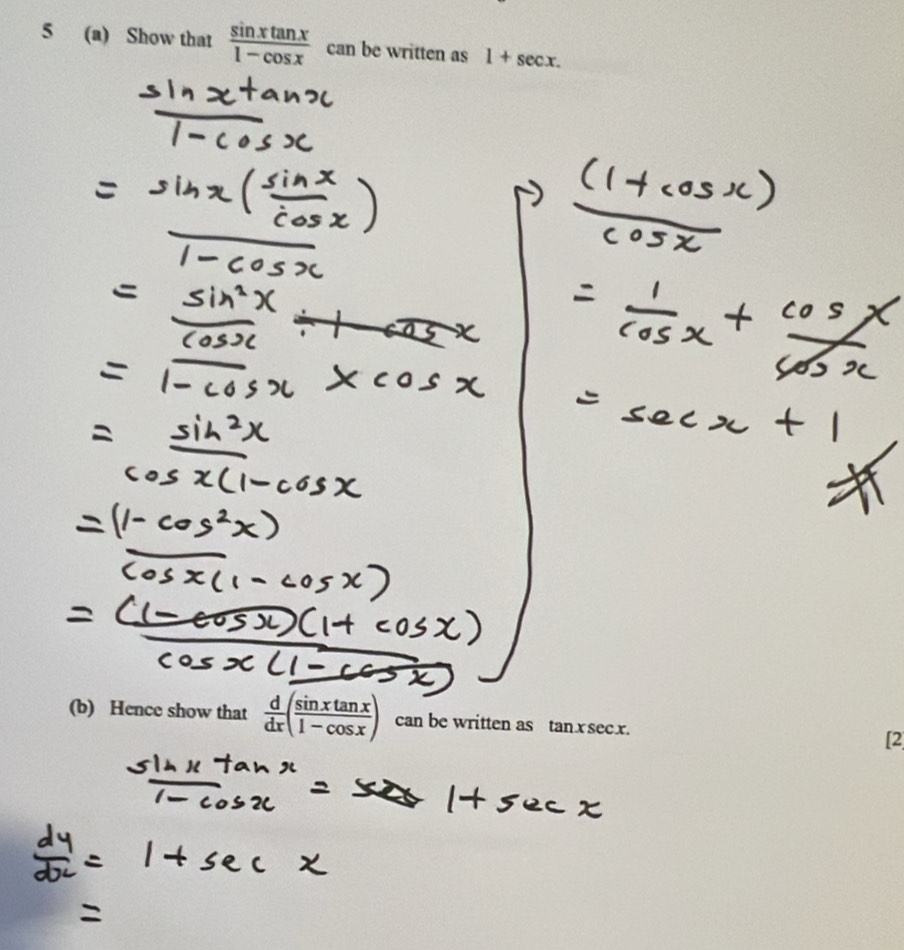 5 (a) Show that sin x tan x / 1 − cos x can be written as 1 + sec x.
sin x tan x / 1 − cos x
= sin x (sin x / cos x) / 1 − cos x
= sin² x / cos x ÷ 1 − cos x
= / 1 − cos x × cos x
= sin² x / cos x (1 − cos x
= (1 − cos² x) / cos x (1 − cos x)
= (1 − cos x)(1 + cos x) / cos x (1 − cos x)
→ (1 + cos x) / cos x
= 1 / cos x + cos x / cos x
= sec x + 1
(b) Hence show that d/dx (sin x tan x / 1 − cos x) can be written as tan x sec x.
[2
sin x tan x / 1 − cos x = 1 + sec x
dy/dx = 1 + sec x
=